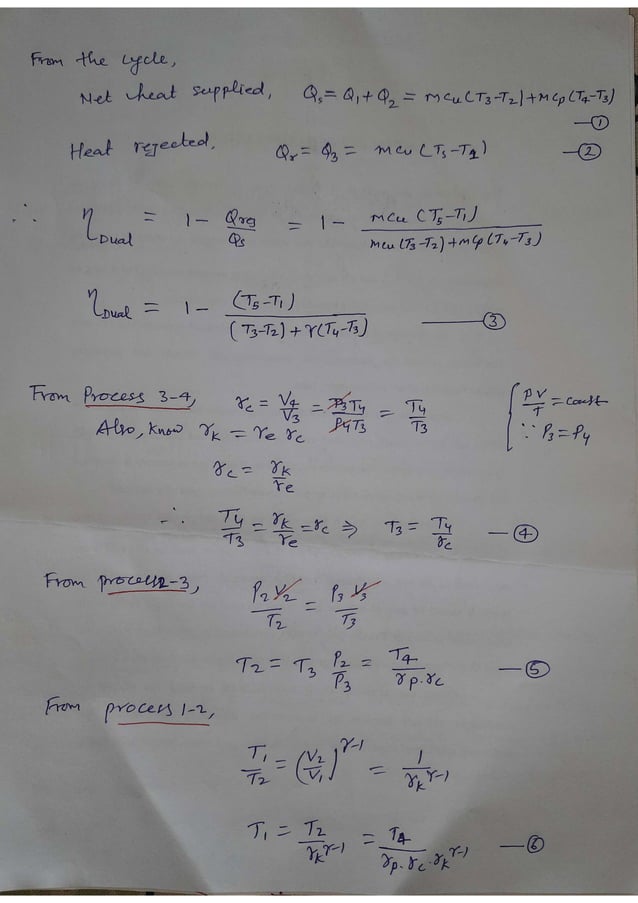 From the cycle,
Net heat supplied, Qs = Q1 + Q2 = mCv(T3-T2)+mCp(T4-T3)
—①
Heat rejected, Qr = Q3 = mCv(T5-T1) —②
∴ ηDual = 1 - Qrej/Qs = 1 - mCv(T5-T1)/mCv(T3-T2)+mCp(T4-T3)
ηDual = 1 - (T5-T1)/(T3-T2)+γ(T4-T3) —③
From Process 3-4, rc = V4/V3 = P3T4/P4T3 = T4/T3 [PV/T = const
Also, know rk = re rc ∵ P3 = P4
rc = rk/re
∴ T4/T3 = rk/re = rc ⇒ T3 = T4/rc —④
From process2-3, P2V2/T2 = P3V3/T3
T2 = T3 P2/P3 = T4/rp.rc —⑤
From process 1-2,
T1/T2 = (V2/V1)^γ-1 = 1/rk^γ-1
T1 = T2/rk^γ-1 = T4/rp.rc.rk^γ-1 —⑥